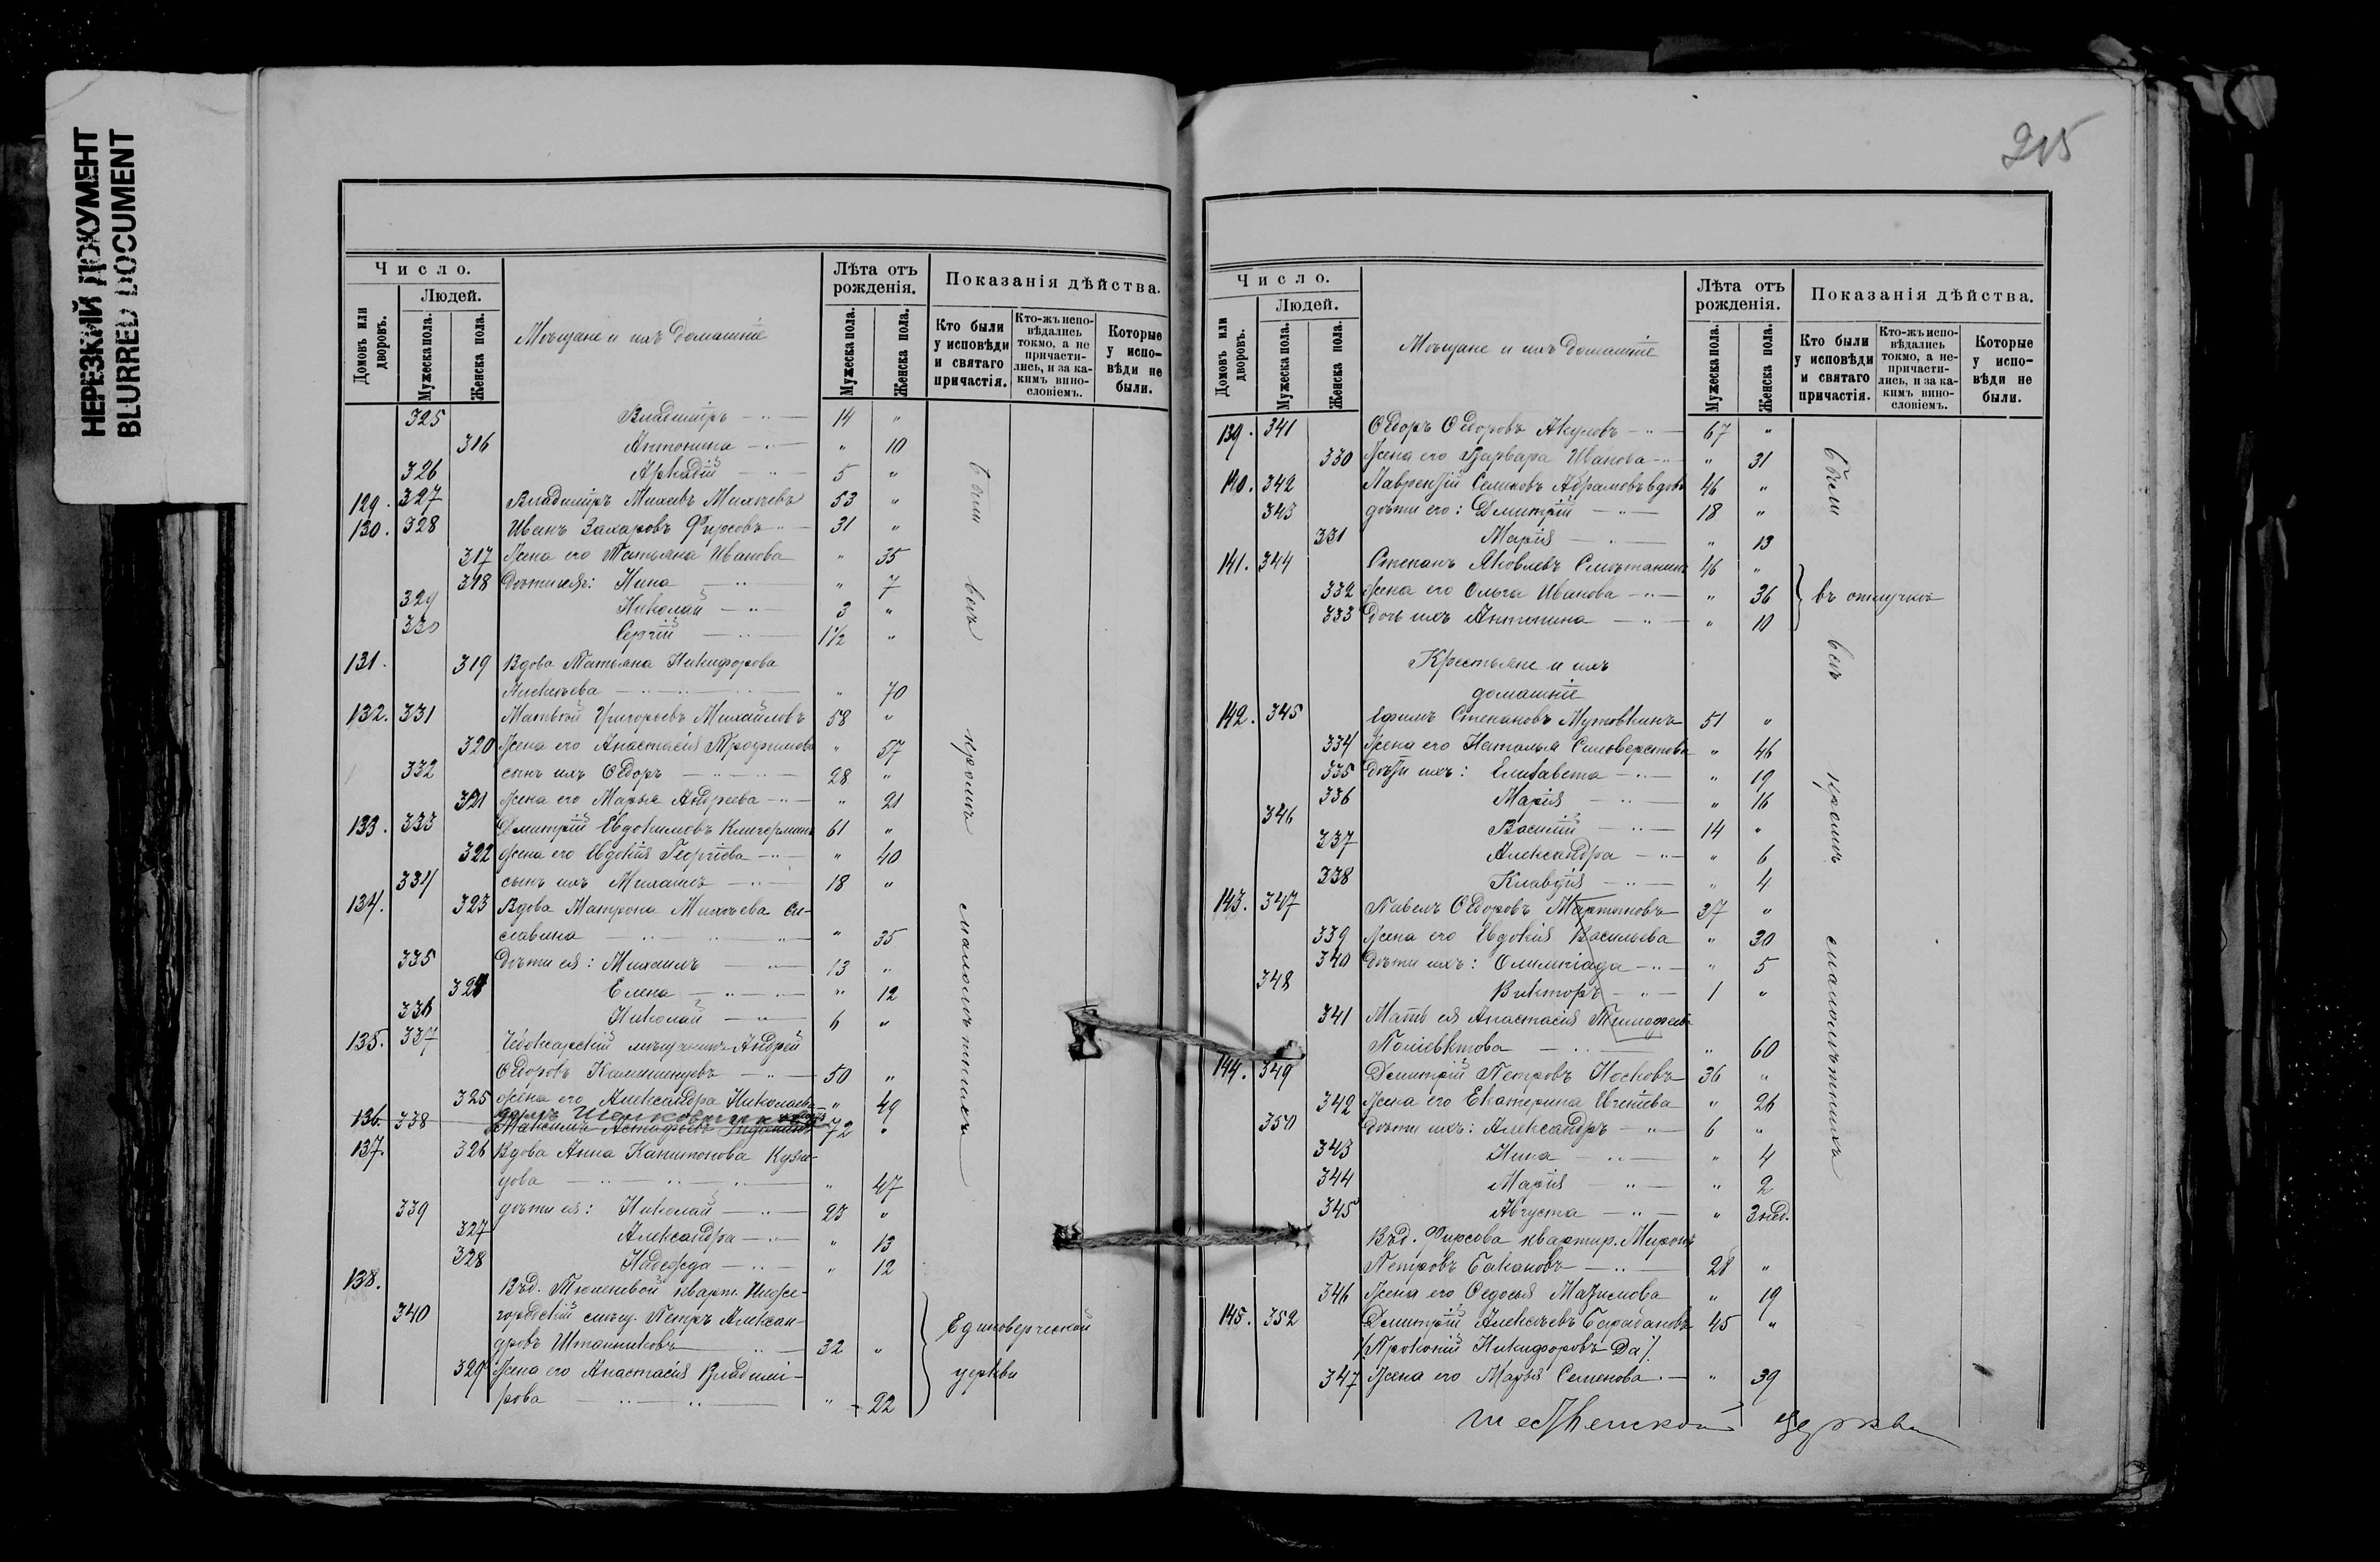 НЕРЕЗКИЙ ДОКУМЕНТ
BLURRED DOCUMENT
Число.
Людей.
Домовъ или дворовъ.
Мужеска пола.
Женска пола.
Мѣщане и ихъ домашніе
Лѣта отъ рожденія.
Мужеска пола.
Женска пола.
Показанія дѣйства.
Кто были у исповѣди и святаго причастія.
Кто-жъ исповѣдались токмо, а не причастились, и за какимъ винословіемъ.
Которые у исповѣди не были.
325 Владиміръ — " — 14 "
316 Антонина — " — " 10
326 Аркадій — " — 5 "
129. 327 Владиміръ Михеевъ Михѣевъ 53 "
130. 328 Иванъ Захаровъ Фирсовъ " — 31 "
317 Жена его Татьяна Иванова " 35
318 Дѣти ихъ: Нина — " " 7
329 Николай — " — 3 "
330 Сергій — " — 1½ "
131. 319 Вдова Татьяна Никифорова
Алексѣева — " — " — " 70
132. 331 Матвѣй Григорьевъ Михайловъ 58 "
320 Жена его Анастасія Трофимова " 57
332 сынъ ихъ Ѳедоръ — " — " — 28 "
321 Жена его Марья Андреева — " — " 21
133. 333 Дмитрій Евдокимовъ 61 "
322 Жена его Евдокія Георгіева — " — " 40
334 сынъ ихъ Михаилъ — " — 18 "
134. 323 Вдова Матрона Михѣева Си-
славина — " — " — " 35
335 Дѣти ея: Михаилъ — " — 13 "
324 Елена — " — " — " 12
336 Николай — " — 6 "
135. 337 Чебоксарскій мѣщанинъ Андрей
Ѳедоровъ Калашенцевъ — " — 50 "
325 Жена его Александра Николаева " 49
136. 338 Максимъ 72 "
137. 326 Вдова Анна Капитонова Кузне-
цова — " — " — " — " 47
339 дѣти ея: Николай — " — 23 "
327 Александра — " — " 13
328 Надежда — " — " 12
138. Въ д. Тюленевой кварт. Ниже-
340 городскій мѣщ. Петръ Алексан-
дровъ Штанниковъ " — 32 "
329 Жена его Анастасія Владимі-
рова — " — " — " 22
были
всѣ
кромѣ
малолѣтнихъ
Единоверческой
церкви
215
Число.
Людей.
Домовъ или дворовъ.
Мужеска пола.
Женска пола.
Мѣщане и ихъ домашніе
Лѣта отъ рожденія.
Мужеска пола.
Женска пола.
Показанія дѣйства.
Кто были у исповѣди и святаго причастія.
Кто-жъ исповѣдались токмо, а не-причастились, и за какимъ винословіемъ.
Которые у исповѣди не были.
139. 341 Ѳедоръ Ѳедоровъ Акуловъ — " — 67 "
330 Жена его Варвара Иванова — " — " 31
140. 342 Лаврентій Семеновъ Абрамовъ вдов. 46 "
343 дѣти его: Дмитрій — " — 18 "
331 Марія — " — " 13
141. 344 Степанъ Яковлевъ Смѣтанинъ 46 "
332 Жена его Ольга Иванова — " — " 36
333 Дочь ихъ Антонина — " — " 10
въ отлучкѣ
Крестьяне и ихъ
домашніе
142. 345 Ефимъ Степановъ Мутовкинъ 51 "
334 Жена его Наталья Сильверстова " 46
335 Дѣти ихъ: Елизавета — " — " 19
336 Марія — " — " 16
346 Василій — " — 14 "
337 Александра — " — " 6
338 Клавдія — " — " 4
143. 347 Павелъ Ѳедоровъ Мартыновъ 37 "
339 Жена его Евдокія Васильева " 30
340 Дѣти ихъ: Олимпіада — " — " 5
348 Викторъ — " — 1 "
341 Мать ея Анастасія Тимофеева
Поліевктова — " — " 60
144. 349 Дмитрій Петровъ Носковъ 36 "
342 Жена его Екатерина Игнтева " 26
350 Дѣти ихъ: Александръ — " — 6 "
343 Нина — " — " 4
344 Марія " — " 2
345 Августа — " — " 3 нед.
Въ д. Фирсова квартир. Миронъ
Петровъ Бакановъ — " — 28 "
346 Жена его Ѳедосья Максимова " 19
145. 352 Дмитрій Алексѣевъ Барабановъ 45 "
/Прокопій Никифоровъ Да/.
347 Жена его Марья Семенова. — " 39
были
всѣ
кромѣ
малолѣтнихъ
церкви